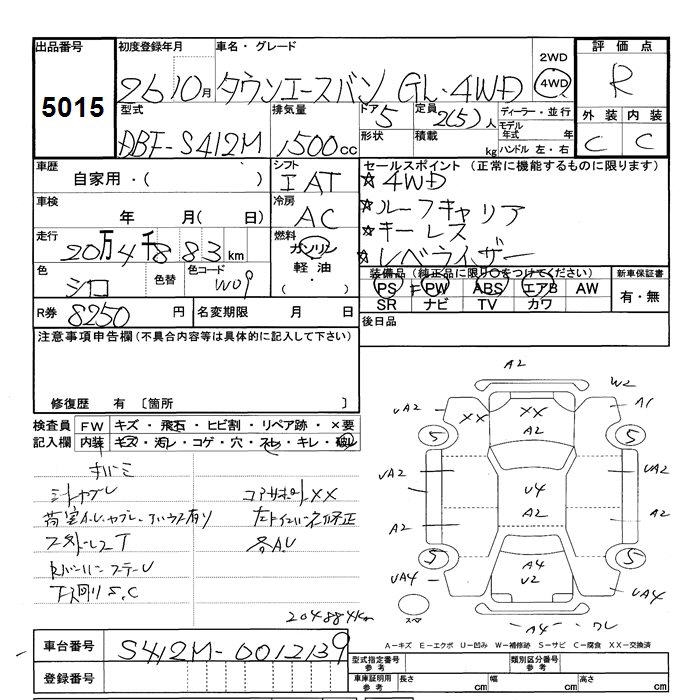 出品番号 初度登録年月 車名・グレード 2WD 評価点
5015 26 10月 タウンエースバン GL・4WD 4WD R
型式 排気量 ドア 5 定員 2(5)人 ディーラー・並行 外装 内装
DBF-S412M 1500cc 形状 積載 kg モデル年式 年 C C
ハンドル 左・右
車歴 シフト セールスポイント(正常に機能するものに限ります)
自家用・( ) IAT ☆4WD
車検 冷房 ☆ルーフキャリア
年 月( 日) AC ☆キーレス
走行 燃料 ☆レベライザー
20万4千883km ガソリン
色 色替 色コード 軽油 装備品(純正品に限り○をつけてください) 新車保証書
シロ W09 (・) PS PW ABS エアB AW 有・無
R券 8250円 名変期限 月 日 SR ナビ TV カワ
注意事項申告欄(不具合内容等は具体的に記入して下さい) 後日品
修復歴 有 〔箇所 〕
検査員 FW キズ・飛石・ヒビ割・リペア跡・×要
記入欄 内装 キズ・汚レ・コゲ・穴・スレ・キレ・破レ
A2
W2
UA2 XX XX A1
A2
5 5
UA2 U4 UA2
A2 A2 A2
5 A4 5
UA4 U2 UA4
スペア
A4
コアサポートXX
各A.U
下廻りS,C
204884km
A-キズ E-エクボ U-凹み W-補修跡 S-サビ C-腐食 XX-交換済
車台番号 S412M-0012139
型式指定番号 参考 類別区分番号 参考
登録番号 車庫証明用 参考 長さ cm 幅 cm 高さ cm